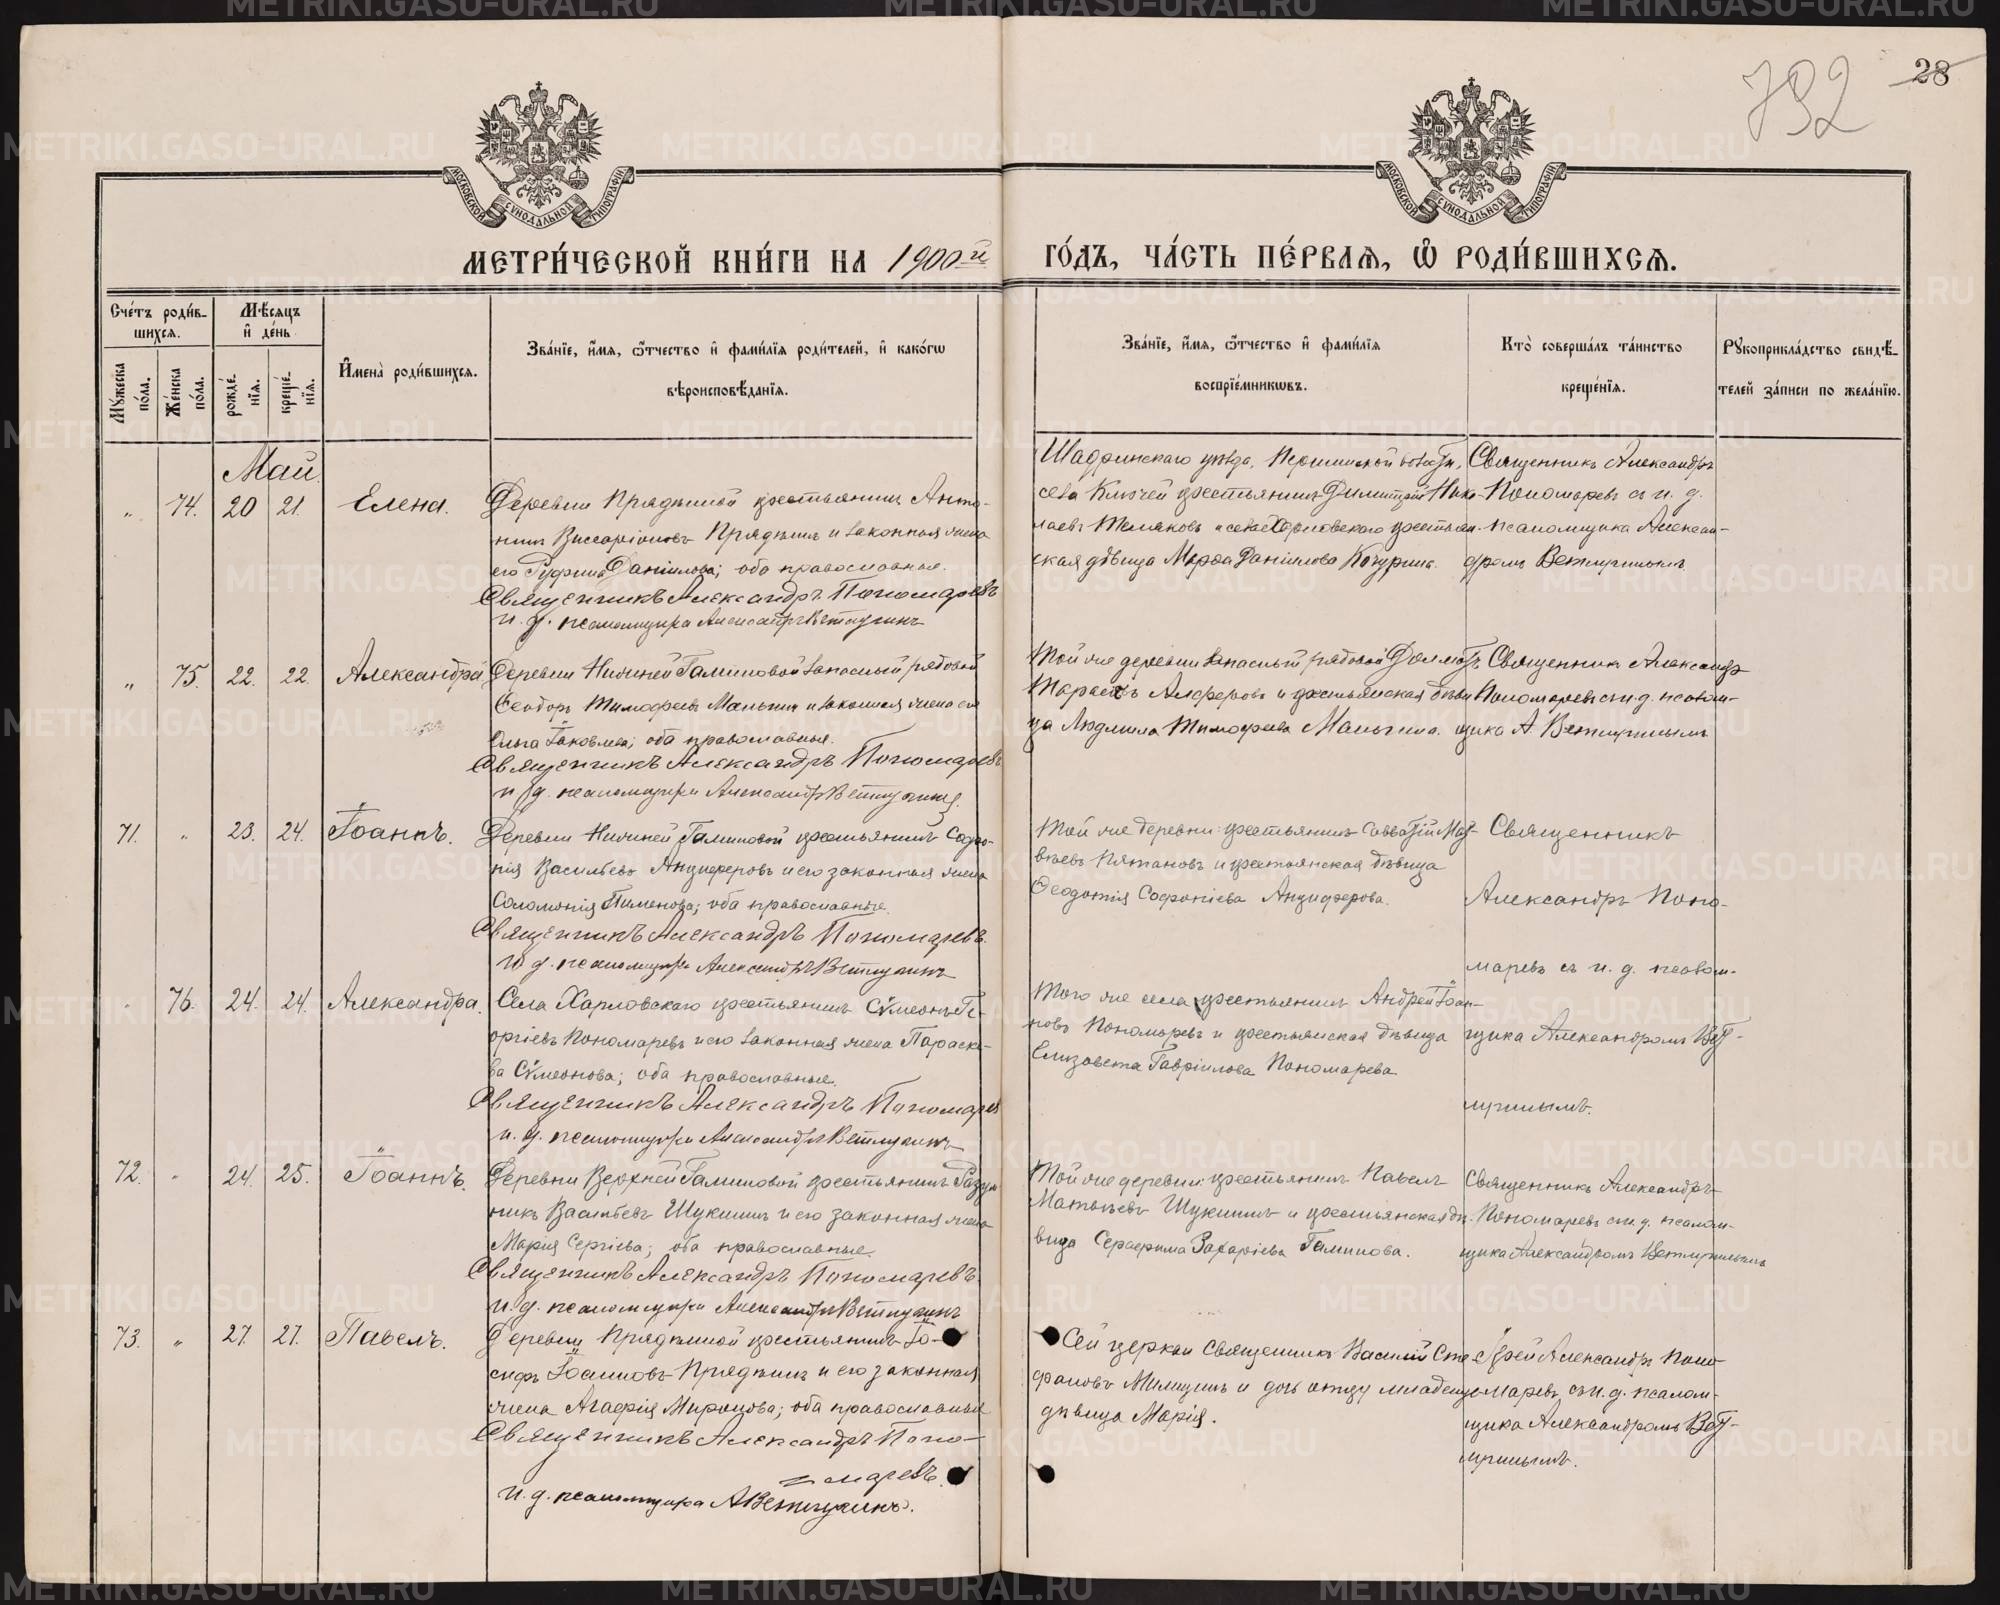 792
28
МОСКОВСКОЙ СѴНОДАЛЬНОЙ ТИПОГРАФІИ
МОСКОВСКОЙ СѴНОДАЛЬНОЙ ТИПОГРАФІИ
МЕТРИ́ЧЕСКОЙ КНИ́ГИ НА 1900й ГО́ДЪ, ЧА́СТЬ ПЕ́РВАѦ, Ѽ РОДИ́ВШИХСѦ.
Сче́тъ роди́в-
шихсѧ.
Мѣ́сѧцъ
и҆ де́нь
Мꙋ́жеска
по́ла.
Же́нска
по́ла.
рожде́-
нїѧ.
креще́-
нїѧ.
И҆мена̀ роди́вшихсѧ.
Зва́нїе, и҆́мѧ, ѻ҆́тчество и҆ фами́лїѧ роди́телей, и҆ како́гѡ
вѣроисповѣ́данїѧ.
Зва́нїе, и҆́мѧ, ѻ҆́тчество и҆ фами́лїѧ
воспрїе́мникѡвъ.
Кто̀ соверша́лъ та́инство
креще́нїѧ.
Рꙋкоприкла́дство свидѣ́-
телей за́писи по жела́нїю.
Май.
„ 74. 20 21. Елена.
Деревни Прядѣиной крестьянинъ Анто-
нинъ Виссаріоновъ Прядѣинъ и законная жена
его Руфина Даніилова; оба православные.
Священникъ Александръ Пономаревъ
и. д. псаломщика Александръ Ветлугинъ
Шадринскаго уѣзда, Першинской волости,
села Ключей крестьянинъ Димитрій Нико-
лаевъ и села Харловскаго крестьян-
ская дѣвица Марѳа Даніилова Кокурина.
Священникъ Александръ
Пономаревъ съ и. д.
псаломщика Алексан-
дромъ Ветлугинымъ
„ 75. 22. 22. Александра
Деревни Нижней Галишовой запасный рядовой
Ѳеодоръ Тимоѳеевъ Маньгинъ и законная жена его
Ольга Іаковлева; оба православные.
Священникъ Александръ Пономаревъ
и. д. псаломщика Александръ Ветлугинъ.
Той же деревни запасный рядовой
Тарасовъ Алферовъ и крестьянская дѣви
ца Людмила Тимоѳеева Маньгина.
Священникъ Александръ
Пономаревъ съ и. д. псалом-
щика А. Ветлугинымъ
71. „ 23. 24. Іоаннъ.
Деревни Нижней Галишовой крестьянинъ Софо-
ній Васильевъ Анциферовъ и его законная жена
Соломонія Пименова; оба православные.
Священникъ Александръ Пономаревъ.
и. д. псаломщика Александръ Ветлугинъ
Той же деревни крестьянинъ Савватій Мат-
вѣевъ Пятановъ и крестьянская дѣвица
Ѳеодотія Софоніева Анциферова.
Священникъ
Александръ Поно-
маревъ съ и. д. псалом-
щика Александромъ Вет-
лугинымъ.
76. 24. 24. Александра.
Села Харловскаго крестьянинъ Сѵмеонъ Ге-
оргіевъ Пономаревъ и его законная жена Параске-
ва Сѵмеонова; оба православные.
Священникъ Александръ Пономаревъ
и. д. псаломщика Александръ Ветлугинъ
Того же села крестьянинъ Андрей Іоан-
новъ Пономаревъ и крестьянская дѣвица
Елизавета Гавріилова Пономарева
72. „ 24. 25. Іоаннъ.
Деревни Верхней Галишовой крестьянинъ Разум-
никъ Васильевъ Щукинъ и его законная жена
Марія Сергіева; оба православные.
Священникъ Александръ Пономаревъ.
и. д. псаломщика Александръ Ветлугинъ
Той же деревни крестьянинъ Павелъ
Матвѣевъ Щукинъ и крестьянская дѣ-
вица Серафима Захаріева Галишова.
Священникъ Александръ
Пономаревъ съ и. д. псалом-
щика Александромъ Ветлугинымъ
73. „ 27. 27. Павелъ.
Деревни Прядѣиной крестьянинъ Іо-
сифъ Іоанновъ Прядѣинъ и его законная
жена Агафія Миронова; оба православные
Священникъ Александръ Поно-
маревъ.
и. д. псаломщика А Ветлугинъ.
Сей церкви священникъ Василій Сте
фановъ и дочь отцу младенца
дѣвица Марія.
Іерей Александръ Поно
маревъ съ и. д. псалом-
щика Александромъ Вет-
лугинымъ.
METRIKI.GASO-URAL.RU